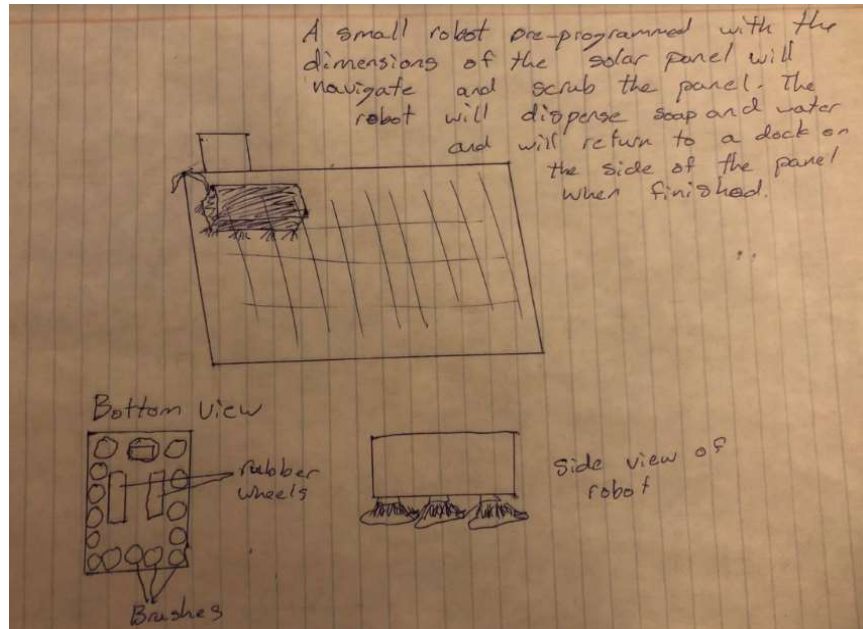 A small robot pre-programmed with the
dimensions of the solar panel will
navigate and scrub the panel. The
robot will dispense soap and water
and will return to a dock on
the side of the panel
when finished.
Bottom view
rubber
wheels
Brushes
side view of
robot